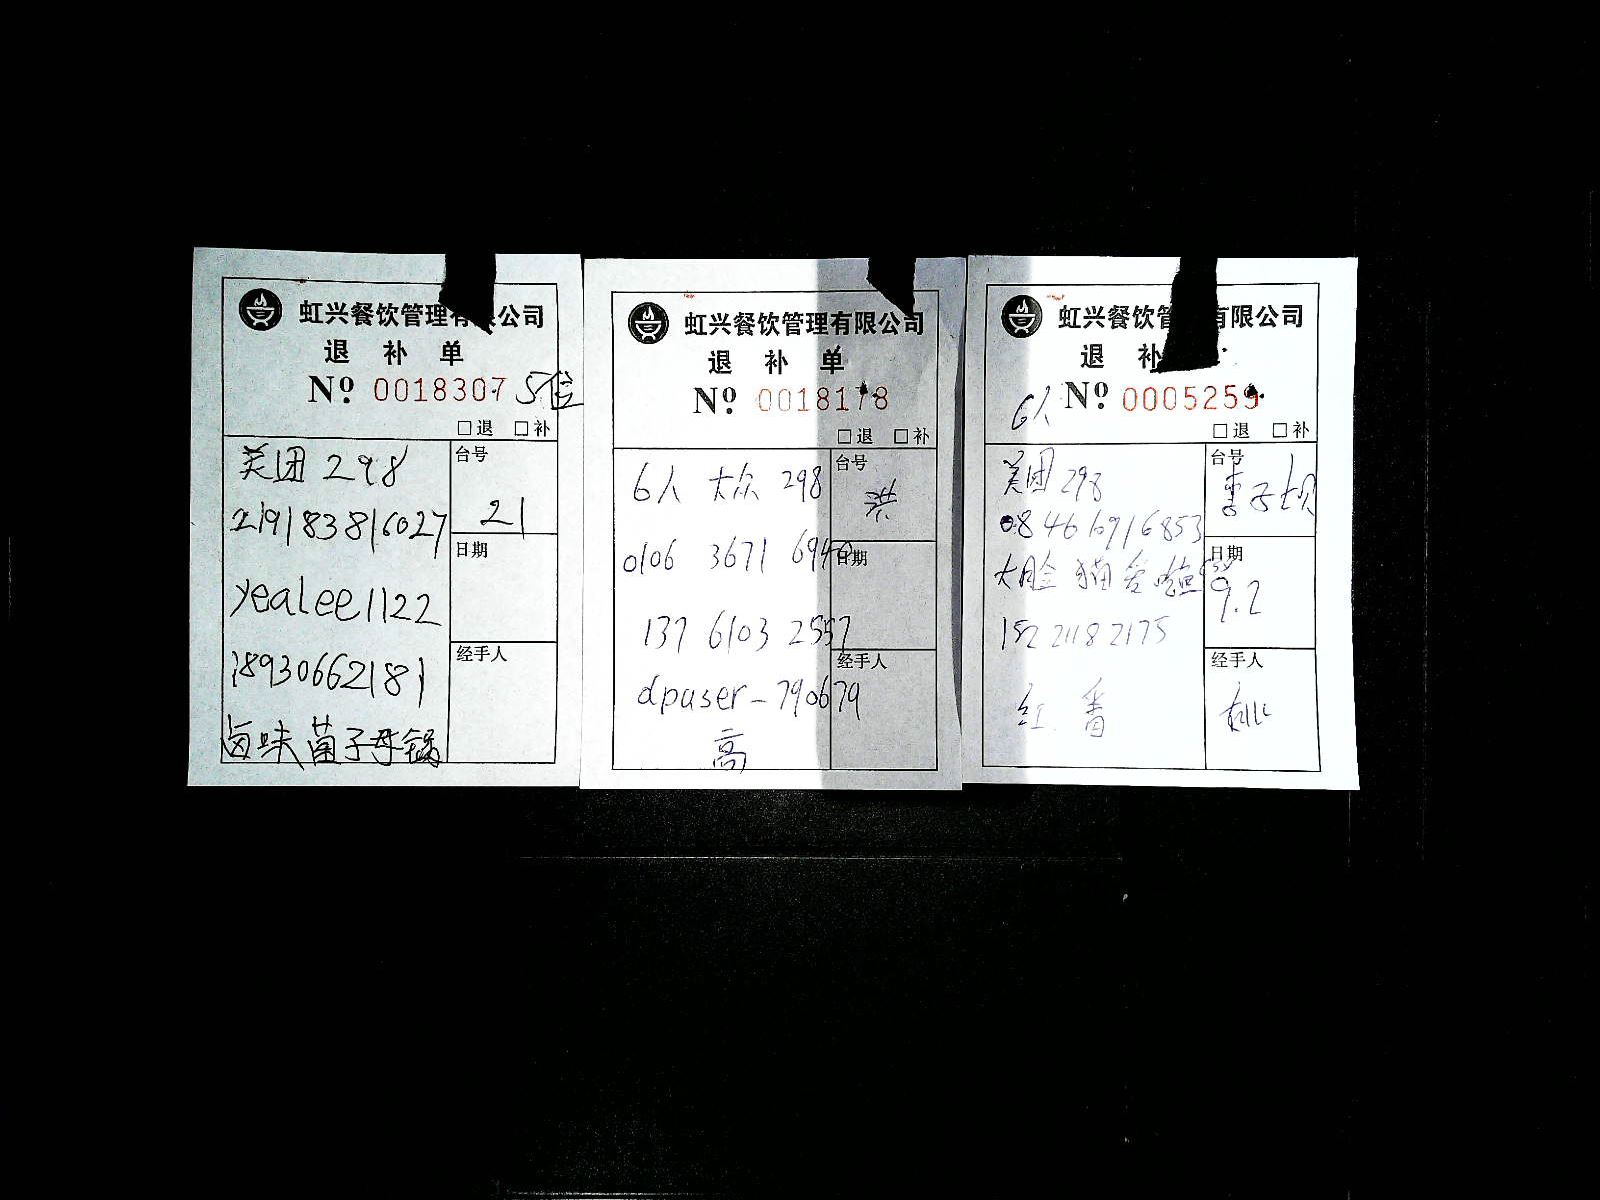 虹兴餐饮管理有 公司
退 补 单
Nº 0018307 5位
□退 □补
美团 298
219183816027
yealee1122
18930662181
卤味菌子母锅
台号
21
日期
经手人
虹兴餐饮管理有限公司
退 补 单
Nº 0018178
□退 □补
6人 大众 298
0106 3671 6940
137 6103 2557
dpuser-790679
高
台号
日期
经手人
虹兴餐饮管 有限公司
退 补
6人 Nº 0005259
□退 □补
美团 298
08 4616916853
大脸猫爱
152 2118 2175
红 番
台号
李子坝
日期
9.2
经手人